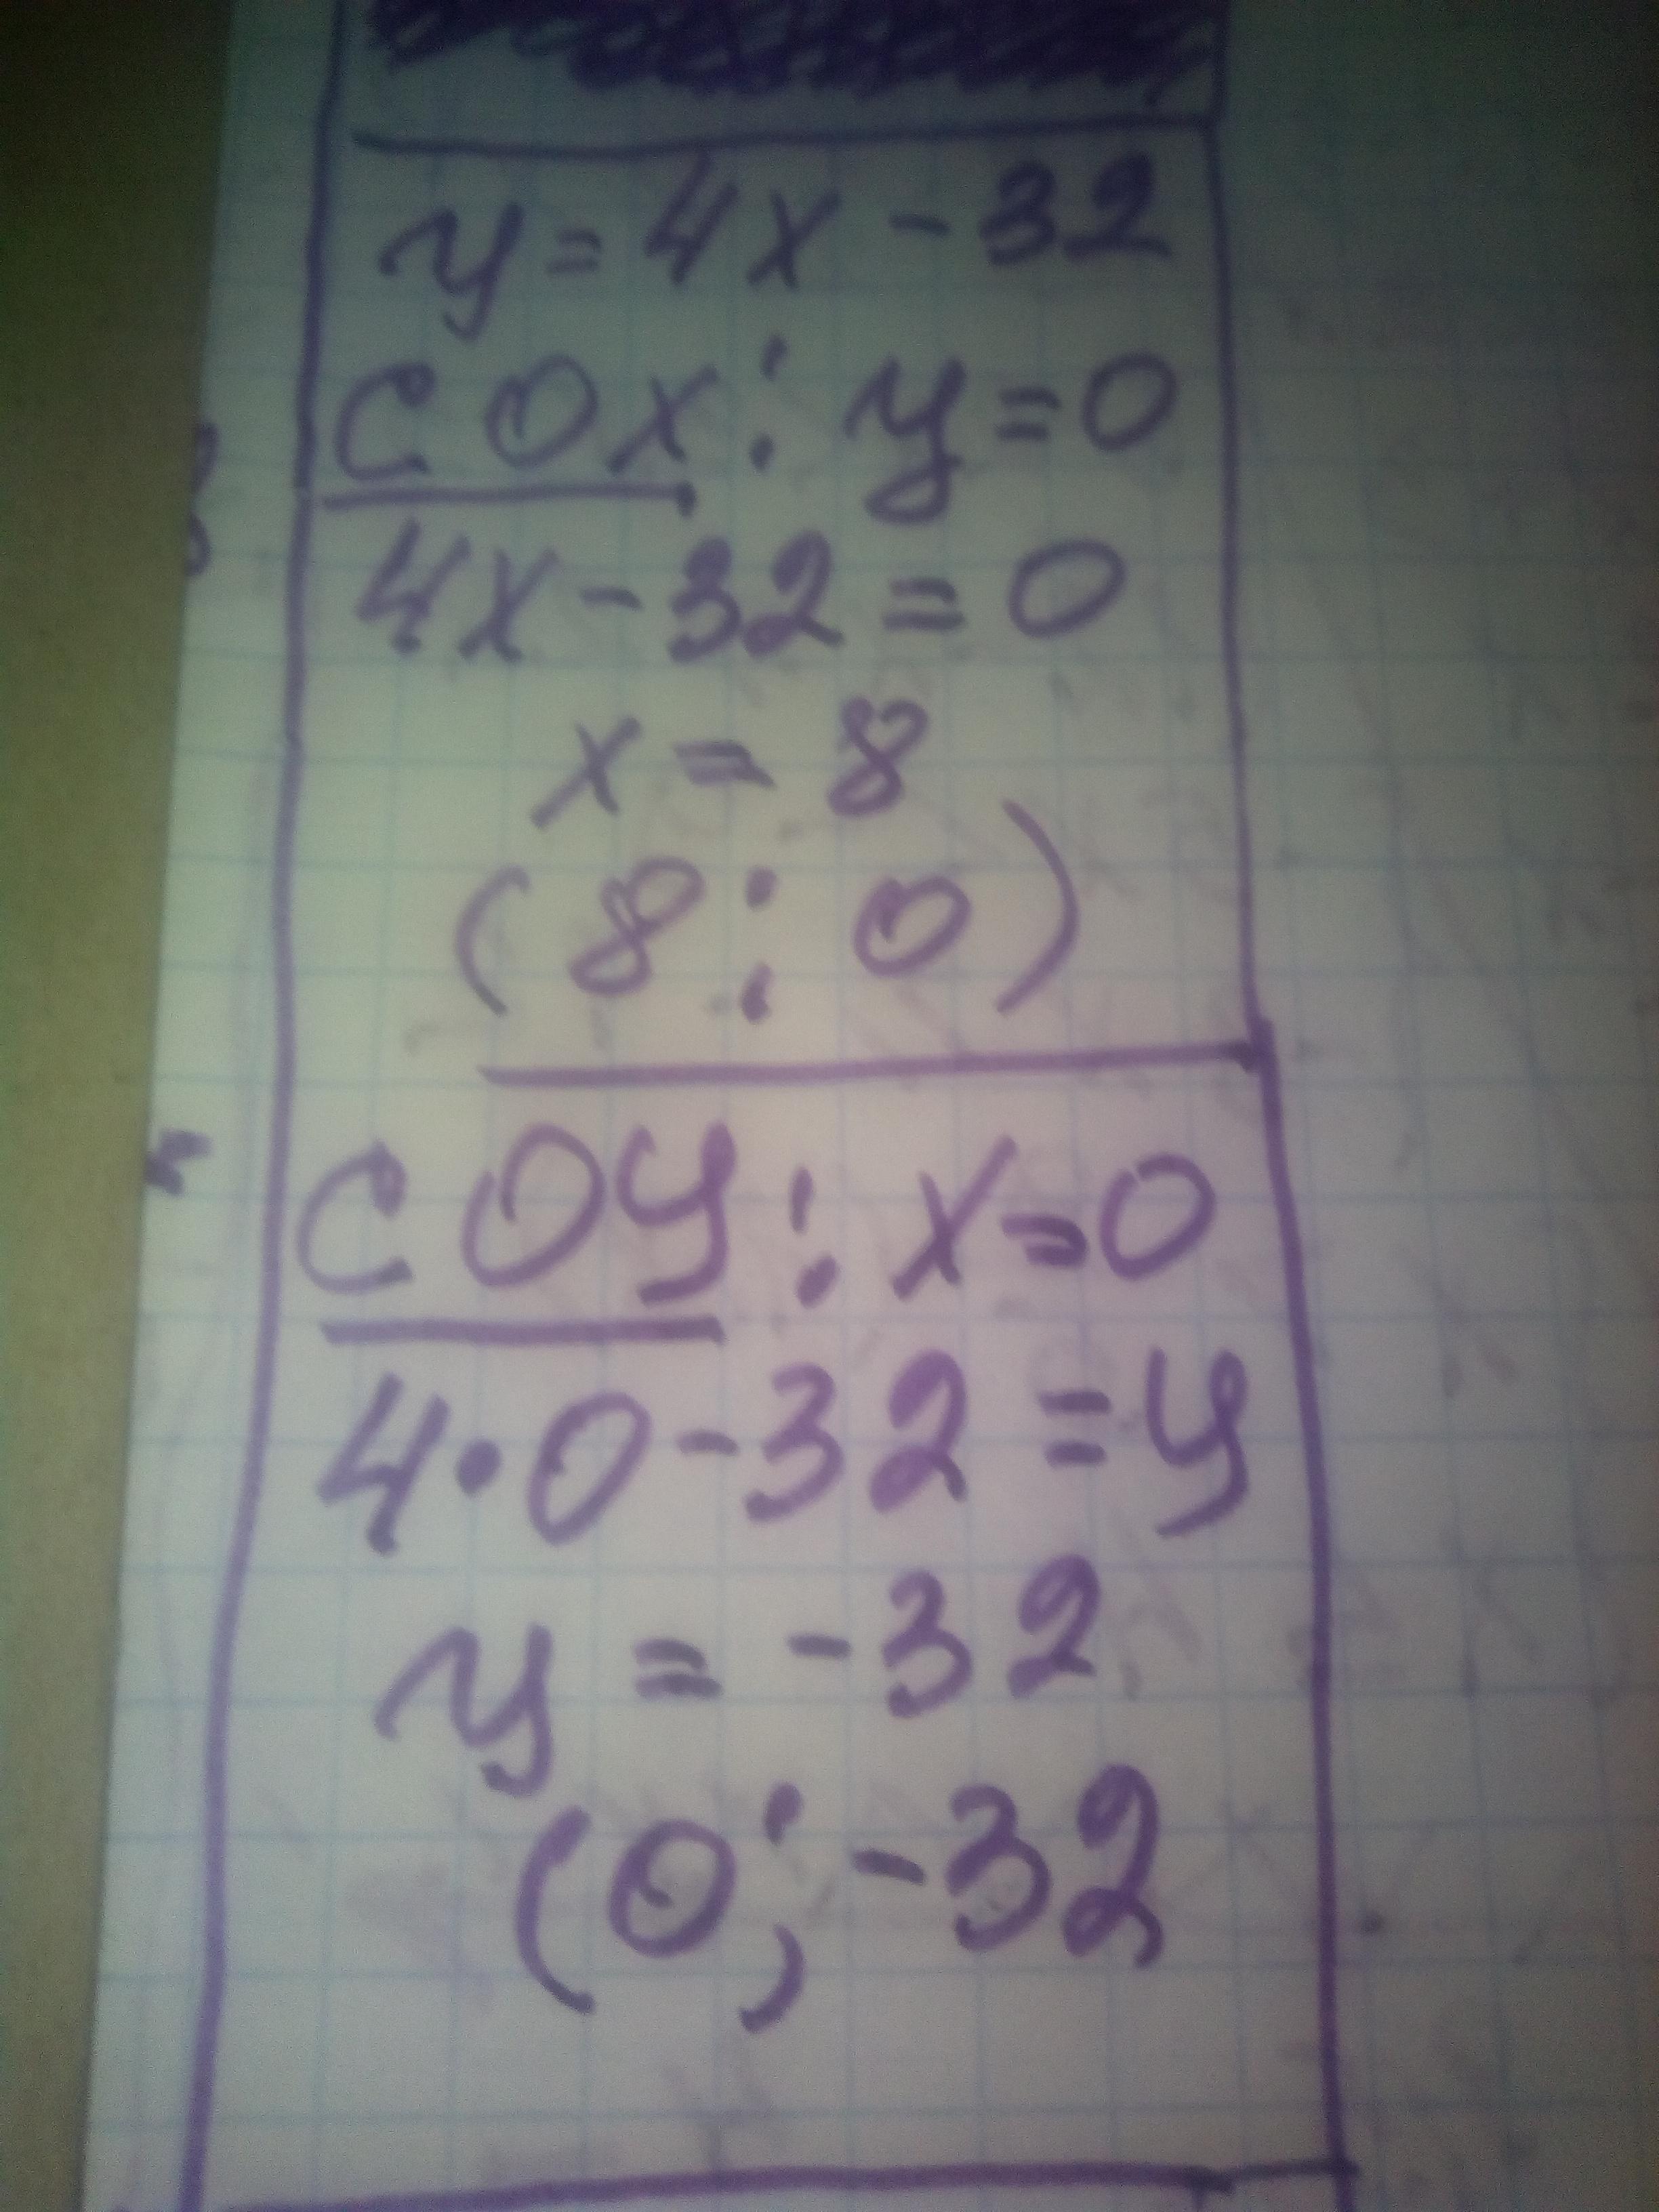 y = 4x - 32
с Ox : y = 0
4x - 32 = 0
x = 8
(8 ; 0)
с Oy : x = 0
4 • 0 - 32 = y
y = -32
(0 ; -32